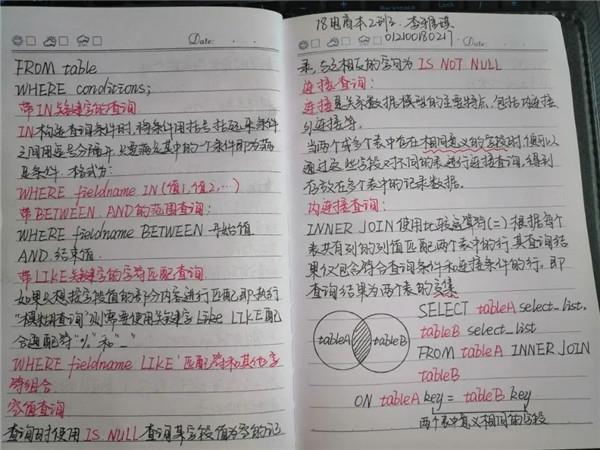 Date:
FROM table
WHERE conditions;
带IN关键字的查询
IN构造查询条件时,将条件用括号括起来条件
之间用逗号分隔开,只要满足其中的一个条件即为满
足条件.格式为:
WHERE fieldname IN(值1,值2,…)
带BETWEEN AND的范围查询:
WHERE fieldname BETWEEN 开始值
AND 结束值.
带LIKE关键字的字符匹配查询
如果只想按字段值的部分内容进行匹配即执行
"模糊查询",则需要使用关键字Like LIKE配
合通配符"%"和"_"
WHERE fieldname LIKE '匹配符和其他字
符组合
空值查询
查询时使用IS NULL查询某字段值为空的记
18电商本2到3.
012100180217.
Date:
录,与之相反的字句为IS NOT NULL
连接查询:
连接是关系数据模型的主要特点,包括内连接
外连接等.
当两个或多个表中存在相同意义的字段时,便可以
通过这些字段对不同的表进行连接查询,得到
存放在多个表中的记录数据.
内连接查询:
INNER JOIN使用比较运算符(=)根据每个
表共有列的列值匹配两个表中的行,其查询结
果仅包含符合查询条件和连接条件的行。即
查询结果为两个表的交集
tableA tableB
SELECT tableA select_list,
tableB select_list
FROM tableA INNER JOIN
tableB
ON tableA key = tableB key
两个表中意义相同的字段